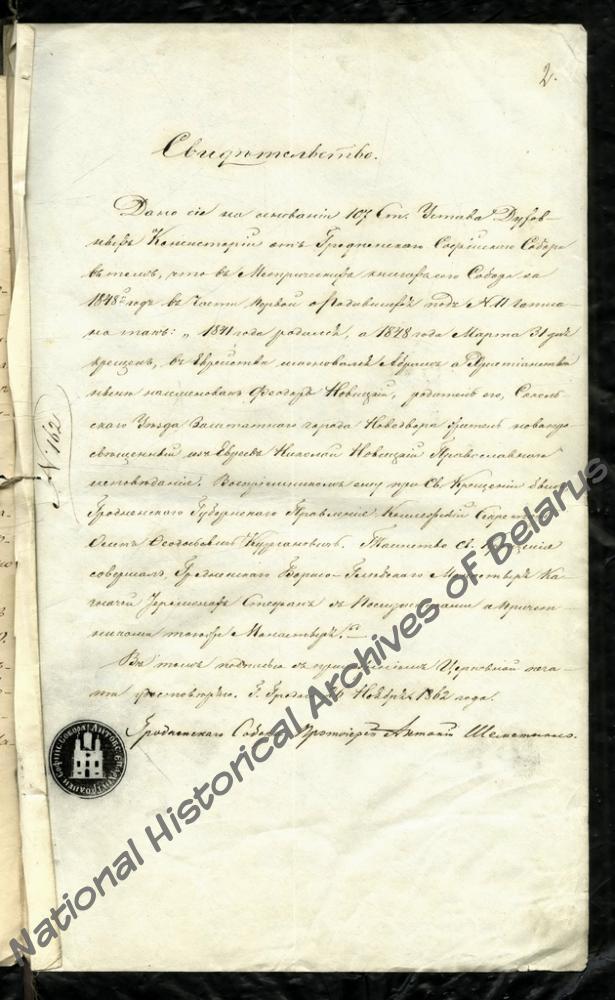 2.
Свидѣтельство.
Дано сіе на основаніи 107 Ст. Устава Духов-
ныхъ Консисторій отъ Гродненскаго Софійскаго Собора
въ томъ, что въ Метрической книгѣ сего Собора за
1848й годъ въ части первой о Родившихся подъ № 11 записа-
но такъ: „1841 года родился, а 1848 года Марта 31 дня
крещенъ, въ Еврействѣ именовался Абрамъ а въ Христіанствѣ
нынѣ наименованъ Феодоръ Новицкій, родитель его, Соколь-
скаго Уѣзда Заштатнаго города Новодвора житель новопро-
свѣщенный изъ Евреевъ Николай Новицкій Православнаго
исповѣданія. Воспріемникомъ ему при Св. Крещеніи былъ
Гродненскаго Губернскаго Правленія Коллежскій
Осипъ Осодьевичъ Кургановичъ. Таинство Св. Крещенія
совершалъ, Гродненскаго Борисо-Глѣбскаго Монастыря Каз-
начей Іеромонахъ Стефанъ съ Послушниками а Причет-
никами тогоже Монастыря."
Въ томъ подписью съ приложеніемъ Церковной печа-
ти удостовѣряю. Г. Гродно Ноября 1862 года.
Гродненскаго Собора Протоіерей Антоній
№ 162
National Historical Archives of Belarus